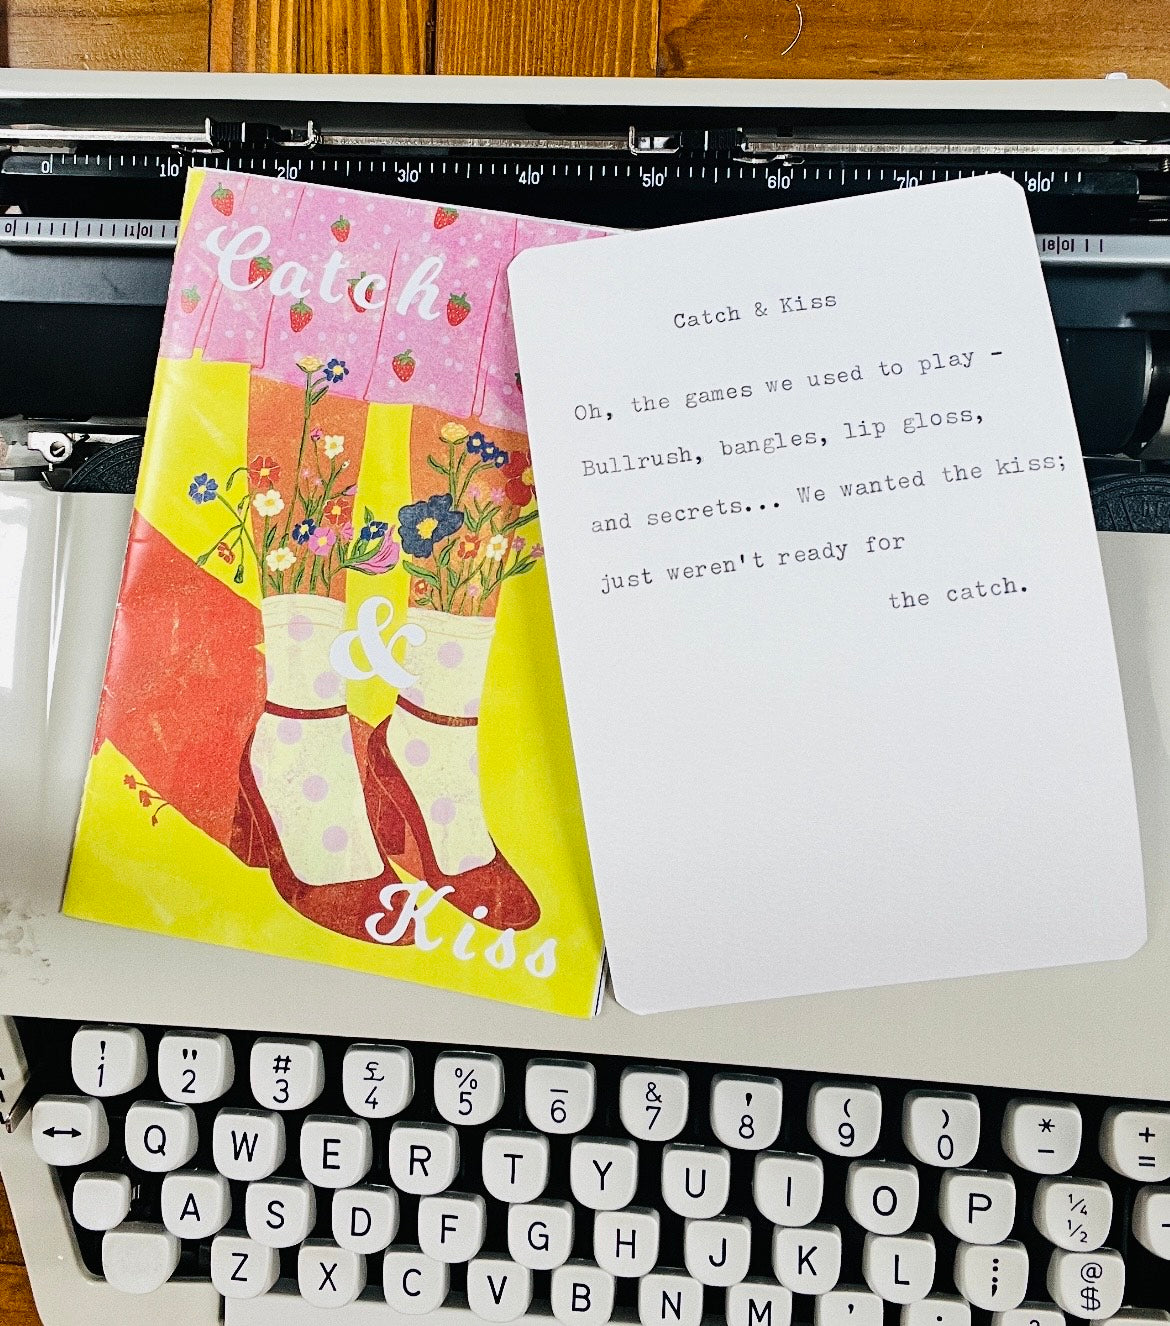 0 10 20 30 40 50 60 70 80
0 10 80
Catch
&
Kiss
Catch & Kiss
Oh, the games we used to play -
Bullrush, bangles, lip gloss,
and secrets... We wanted the kiss;
just weren't ready for
the catch.
! " # £ % _ & ' ( ) * +
1 2 3 4 5 6 7 8 9 0 - =
↔ Q W E R T Y U I O P ¼ ½
A S D F G H J K L : ; @ $
Z X C V B N M , . ?